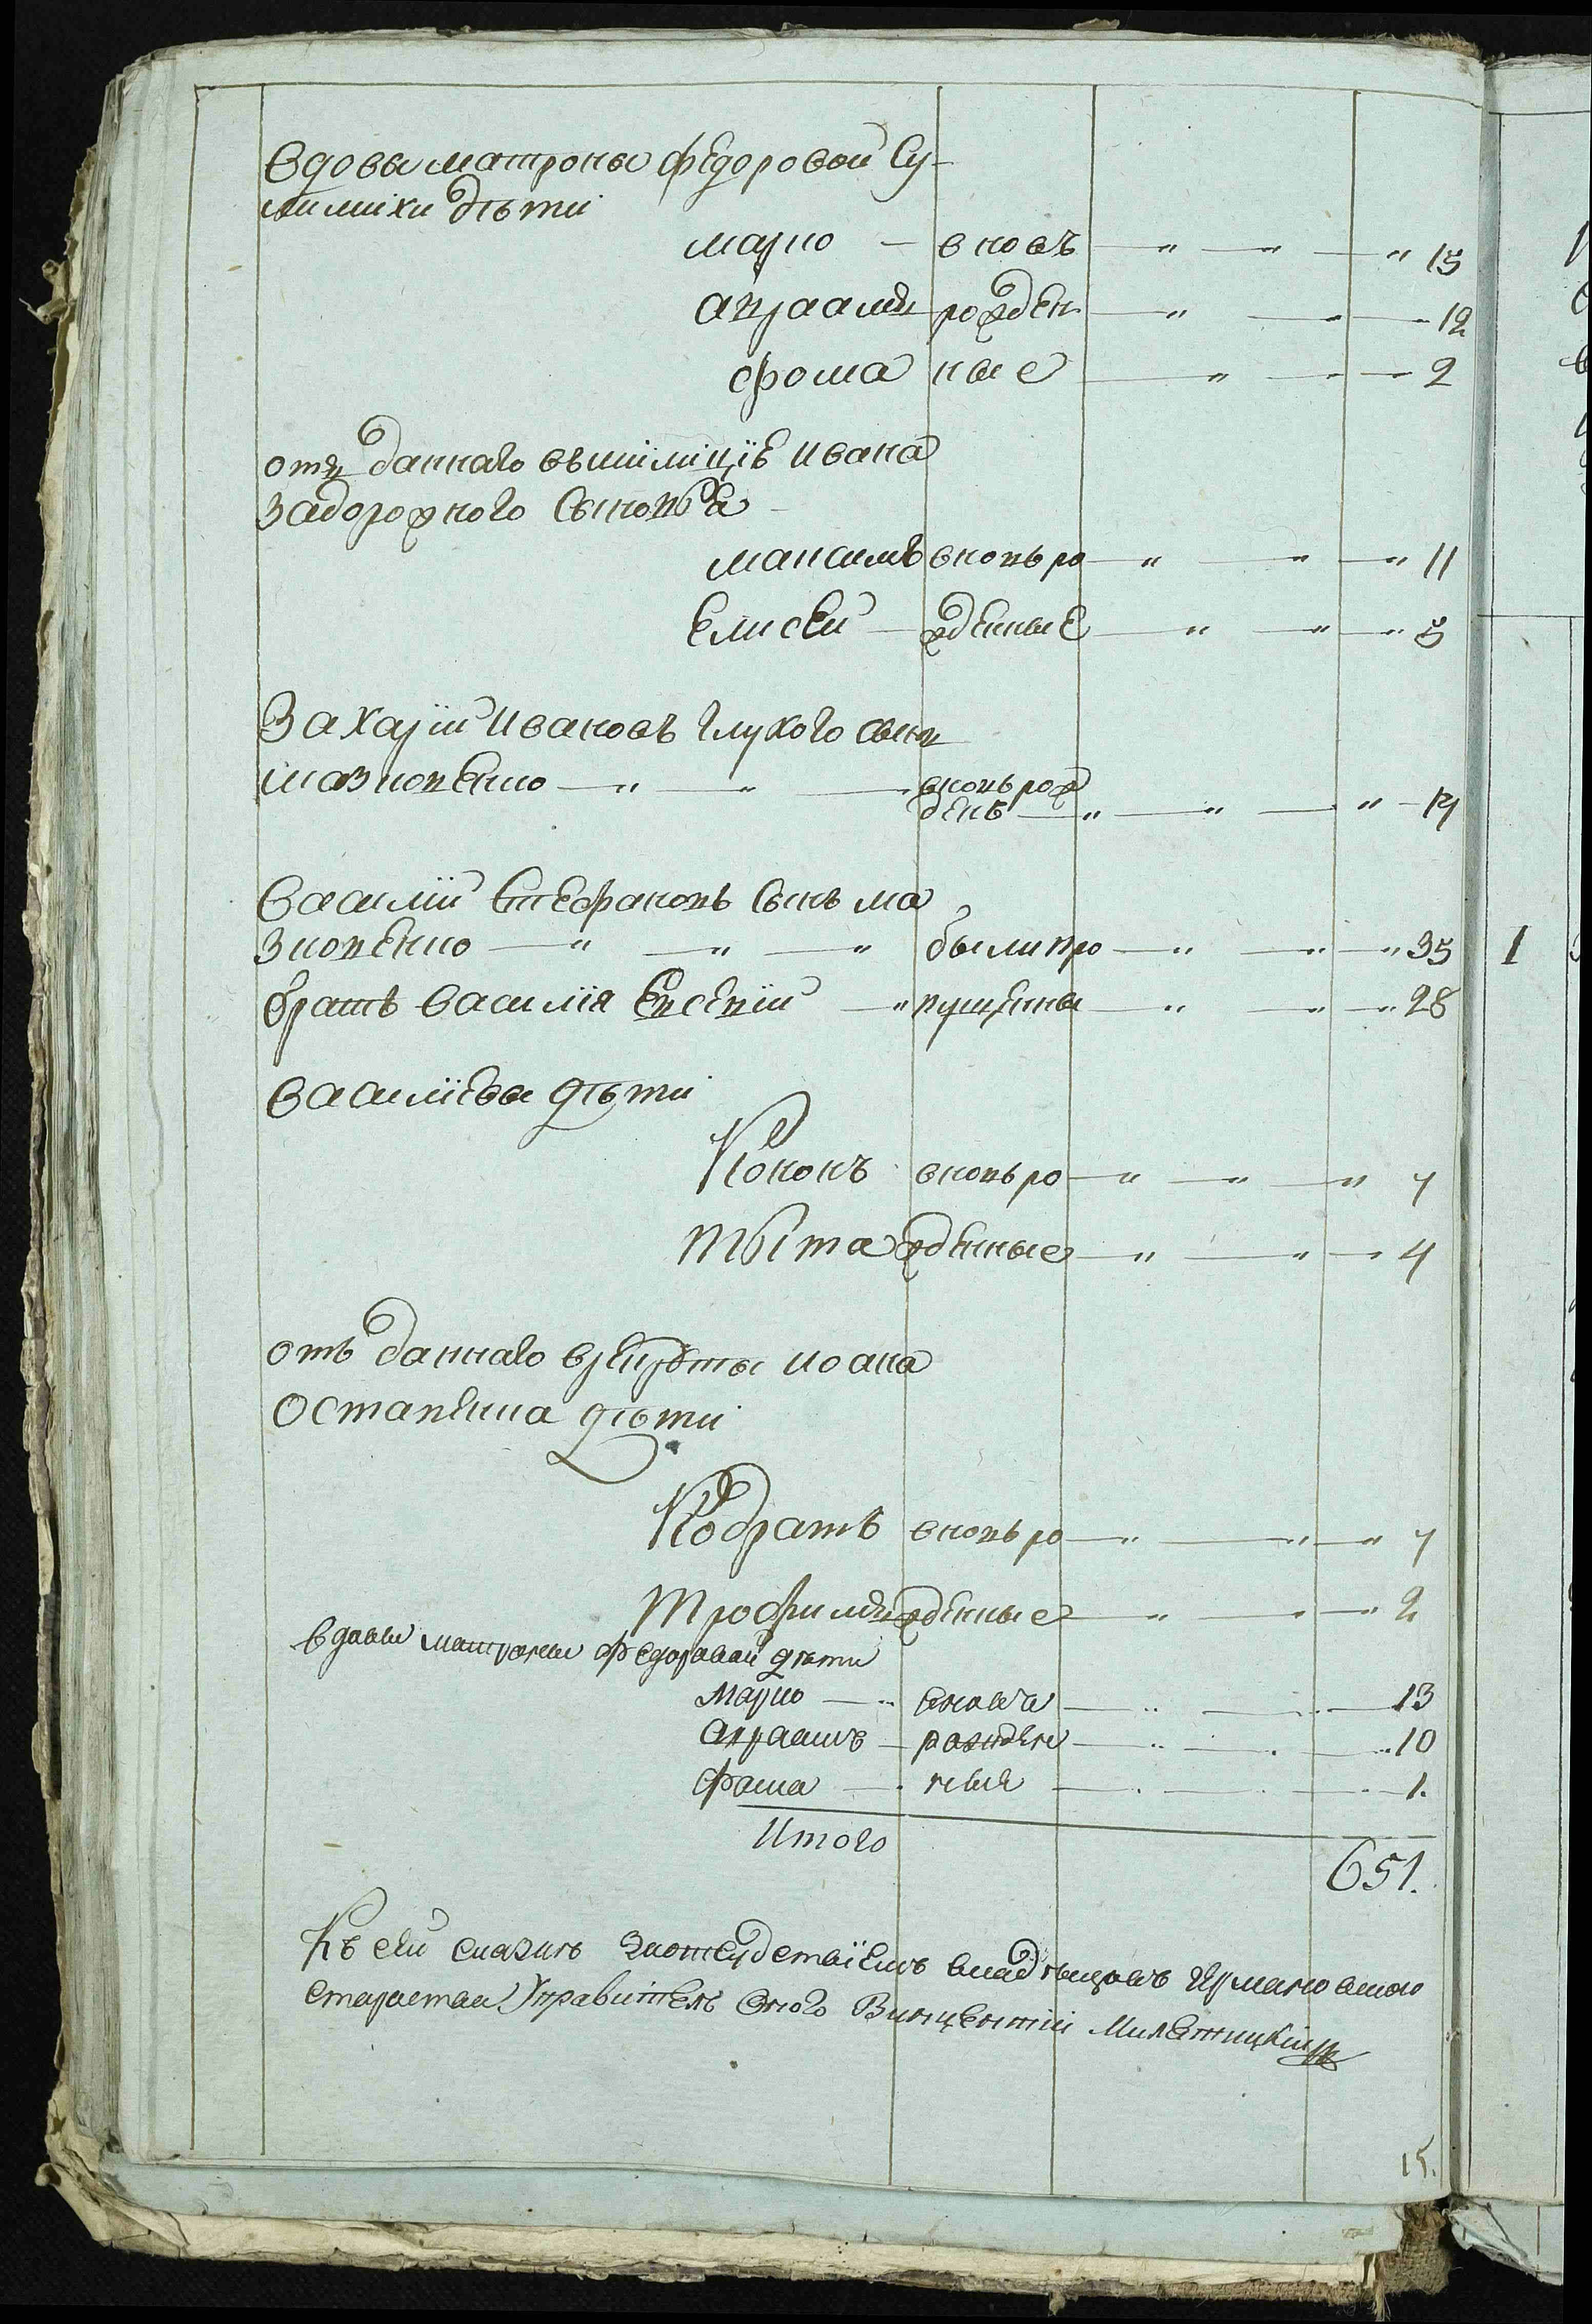 вдовы матроны федоровой Су-
лимихи дѣти
марко — вновъ — " — " — " 15
авраамъ рожден — " — — 12
фома ные — " — — 2
отъ данного вмилицїе ивана
задорожного Сыновья
максимъ вновь ро — " — " — " 11
Елисей — жденные — " — " — " 8
Захарїй Ивановъ глухого сынъ
мазновенко — " — " — вновь рож
денъ — " — " — " — 14
Василїй Стефановъ Сынъ ма
зновенко — " — " — " были про — " — " — " 35
братъ василїя Евсевїй — " пущены — " — " — " 28
василїевы дѣти
Кононъ вновь ро — " — " — " 7
тыта жденные — " — " — 4
отъ данного врекруты иоана
Остапенка дѣти
Кодратъ вновь ро — " — " — " 7
трофимъ жденные — " — " — " 2
вдовы матроны федоровой дѣти
Марко — " вновъ — " — " — 13
Авраамъ — рожден — " — " — 10
фома — " ные — " — " — 1.
Итого
651.
Къ сей сказкѣ
староства Управитель Оного Винцентий Милетницкий
15.